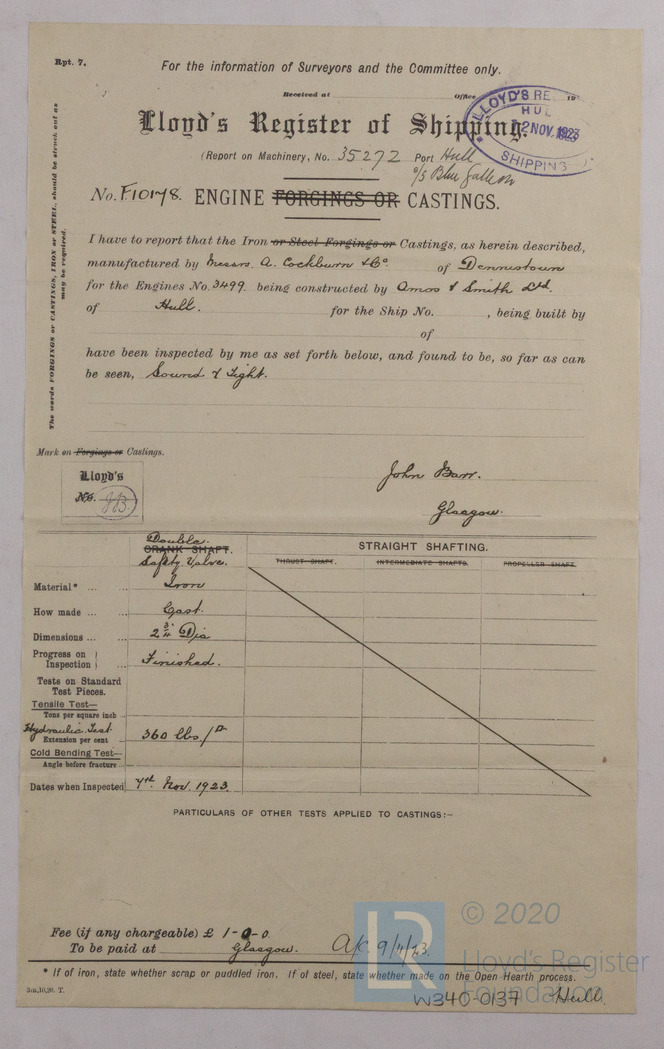 Rpt. 7.
For the information of Surveyors and the Committee only.
Received at Office 19
LLOYD'S RE
HUL
2 NOV. 1923
SHIPPING
Lloyd's Register of Shipping.
(Report on Machinery, No. 35272 Port Hull
S/S Blue Galleon
No. F10178. ENGINE FORGINGS OR CASTINGS.
The words FORGINGS or CASTINGS, IRON or STEEL, should be struck out as
may be required.
I have to report that the Iron or Steel Forgings or Castings, as herein described,
manufactured by Messrs. A. Cockburn & Co of Dennistown
for the Engines No. 3499 being constructed by Amos & Smith Ltd.
of Hull. for the Ship No. , being built by
of
have been inspected by me as set forth below, and found to be, so far as can
be seen, Sound & Tight.
Mark on Forgings or Castings.
Lloyd's
No. JB
John Barr.
Glasgow.
Double
CRANK SHAFT.
Safety Valve.
STRAIGHT SHAFTING.
THRUST SHAFT. INTERMEDIATE SHAFTS. PROPELLER SHAFT.
Material* ... ... Iron
How made ... Cast.
Dimensions ... ... 2 3/4" Dia
Progress on
Inspection ... Finished.
Tests on Standard
Test Pieces.
Tensile Test—
Tons per square inch ..
Hydraulic Test
Extension per cent .. 360 lbs/□"
Cold Bending Test—
Angle before fracture ..
Dates when Inspected 7th Nov. 1923.
PARTICULARS OF OTHER TESTS APPLIED TO CASTINGS:—
Fee (if any chargeable) £ 1-0-0
To be paid at Glasgow. A/C 9/11/23.
* If of iron, state whether scrap or puddled iron. If of steel, state whether made on the Open Hearth process.
3m,10,20. T.
W340-0137 Hull.
LR
© 2020
Lloyd's Register
Foundation